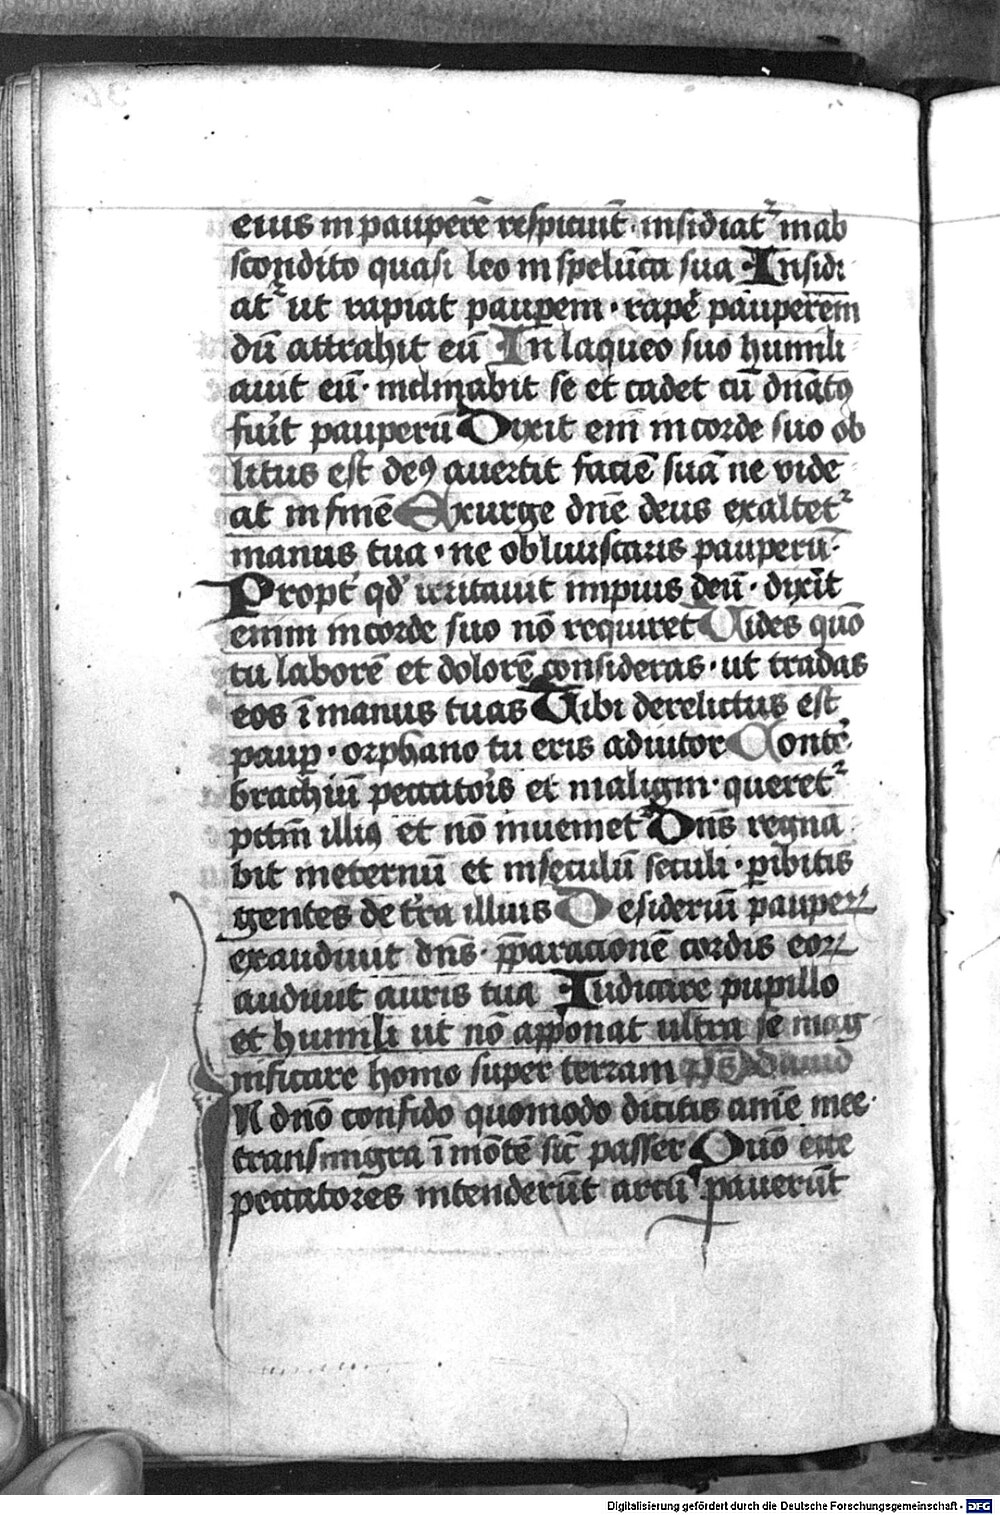 eius in pauperē respiciūt · insidiat᷑ in ab
scondito quasi leo in spelūca sua Insidi
at᷑ ut rapiat pauꝑem · rapeʼ pauperem
dū attrahit eū In laqueo suo humili
auit eū · inclinabit se et cadet cū dn̄atꝰ
fuʼit pauperū Dixit em̄ in corde suo ob
litus est deꝰ auertit faciē suā ne vide
at in finē Exurge dn̄e deus exaltet᷑
manus tua · ne obliuiscaris pauperū
Proptʼ qd̓ irritauit impius deū · dixit
enim in corde suo nō requiret Uides quō
tu laborē et dolorē consideras · ut tradas
eos ī manus tuas Tibi derelictus est
pauꝑ · orphano tu eris adiutor Conteʼ
brachiū peccatoʼis et maligni · queret᷑
pctm̄ illiꝰ et nō inueniet᷑ Dn̄s regna
bit in eternū et in seculū seculi · ꝑibitis
gentes de tʼra illius Desideriū pauperꝝ
exaudiuit dn̄s · p̄paracionē cordis eoꝝ
audiuit auris tua Iudicare pupillo
et humili ut nō apponat ultra se mag
nificare homo super terram ps̄ Dauid
N dn̄o confido quomodo dicitis anīe mee ·
transmigra ī mōtē sic̄ passer Quō ecce
peccatores intenderūt arcū pauerūt
Digitalisierung gefördert durch die Deutsche Forschungsgemeinschaft - DFG